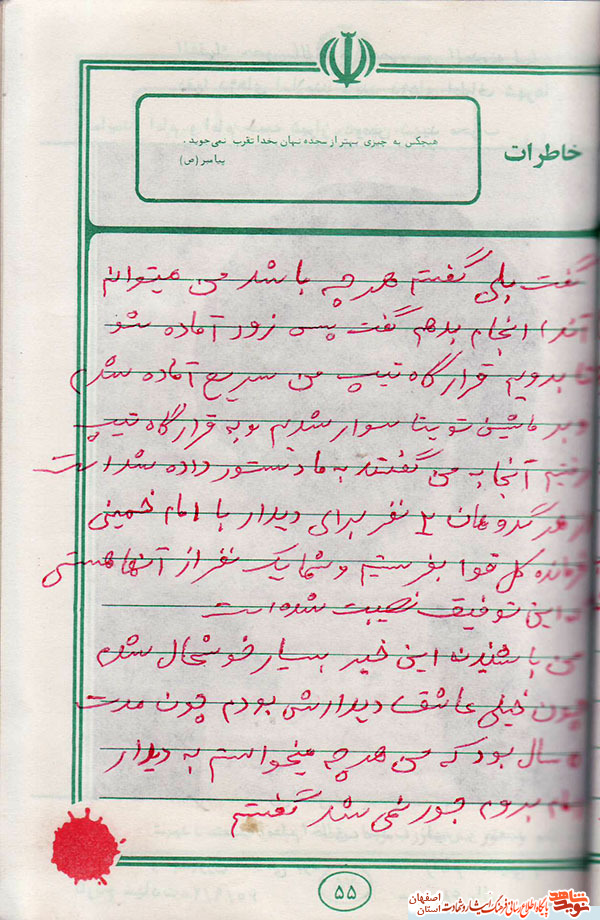 هیچکس به چیزی بهتر از سجده نهان بخدا تقرب نمی‌جوید.
پیامبر (ص)
خاطرات
گفت بلی گفتم هر چه باشد من میتوانم
آنرا انجام بدهم گفت پس زود آماده شو
تا برویم قرارگاه تیپ من سریع آماده شدم
و بر ماشین تویتا سوار شدیم و به قرارگاه تیپ
رفتیم آنجا به من گفتند به ما دستور داده شده است
از هر گروهان ۲ نفر برای دیدار با امام خمینی
فرمانده کل قوا بفرستیم و شما یک نفر از آنها هستی
این توفیق نصیبت شده است
من با شنیدن این خبر بسیار خوشحال شدم
چون خیلی عاشق دیدارش بودم چون مدت
۵ سال بود که من هر چه میخواستم به دیدار
امام بروم جور نمی شد گفتم
۵۵
نوید شاهد
پایگاه اطلاع رسانی فرهنگ ایثار و شهادت
استان اصفهان